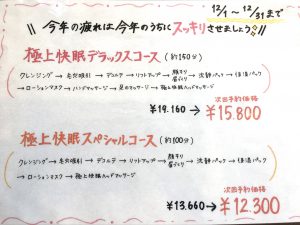 12/1～12/31まで
今年の疲れは今年のうちにスッキリさせましょう!!
極上快眠デラックスコース (約150分)
クレンジング → 毛穴吸引 → デコルテ → リフトアップ → 顔そり 眉づくり → 沈静パック → 保湿パック
→ ローションマスク → ハンドマッサージ → 足のマッサージ → 極上快眠ヘッドマッサージ
次回予約価格
¥19.160 → ¥15.800
極上快眠スペシャルコース (約100分)
クレンジング → 毛穴吸引 → デコルテ → リフトアップ → 顔そり 眉づくり → 沈静パック → 保湿パック
→ ローションマスク → 極上快眠ヘッドマッサージ
次回予約価格
¥13.660 → ¥12.300